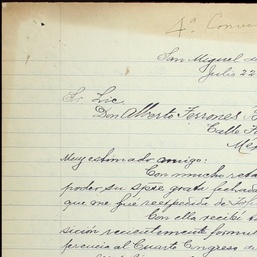 4ª Conve
San Miguel de
Julio 22
Sr. Lic.
Don Alberto Terrones B
Calle
Méx
Muy estimado amigo:
Con mucho reta
poder su grata fechada
que me fué reexpedida de
Con ella recibí
sición recientemente formul
ferencia al Cuarto Congreso de